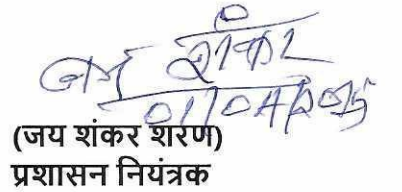 जय शंकर
01/04/2015
(जय शंकर शरण)
प्रशासन नियंत्रक